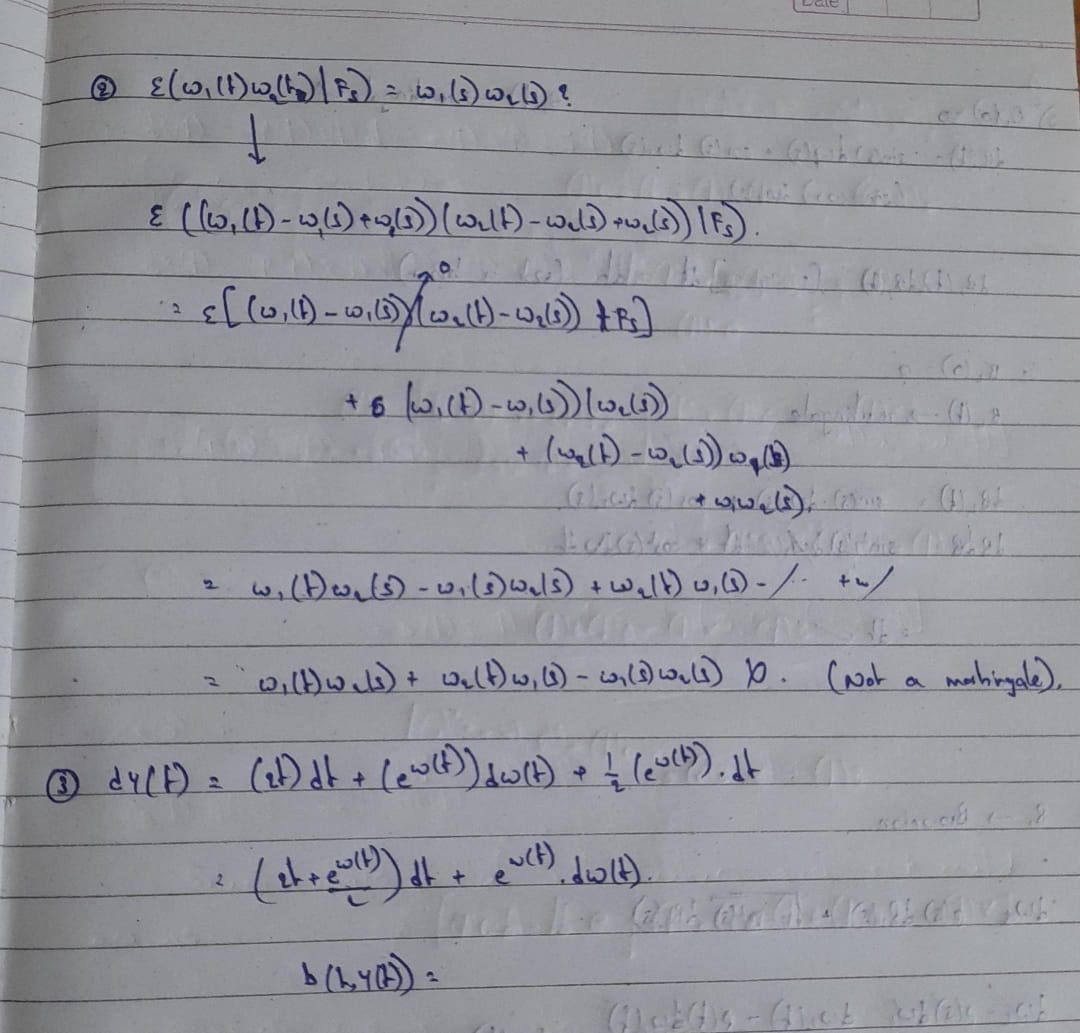 Date
② ε(ω₁(t)ω₂(t)|Fₛ) = ω₁(s)ω₂(s)?
↓
ε((ω₁(t)-ω₁(s)+ω₁(s))(ω₂(t)-ω₂(s)+ω₂(s))|Fₛ).
= ε[(ω₁(t)-ω₁(s))(ω₂(t)-ω₂(s)) | Fₛ] ↗0
+ ε (ω₁(t)-ω₁(s))(ω₂(s))
+ (ω₂(t)-ω₂(s))ω₁(s)
+ ω₁ω₂(s).
= ω₁(t)ω₂(s) - ω₁(s)ω₂(s) + ω₂(t)ω₁(s) -
= ω₁(t)ω₂(s) + ω₂(t)ω₁(s) - ω₁(s)ω₂(s). (Not a martingale).
③ dY(t) = (2t)dt + (e^ω(t))dω(t) + 1/2 (e^ω(t)).dt
= (2t + e^ω(t)/2)dt + e^ω(t).dω(t).
b(t,Y(t)) =